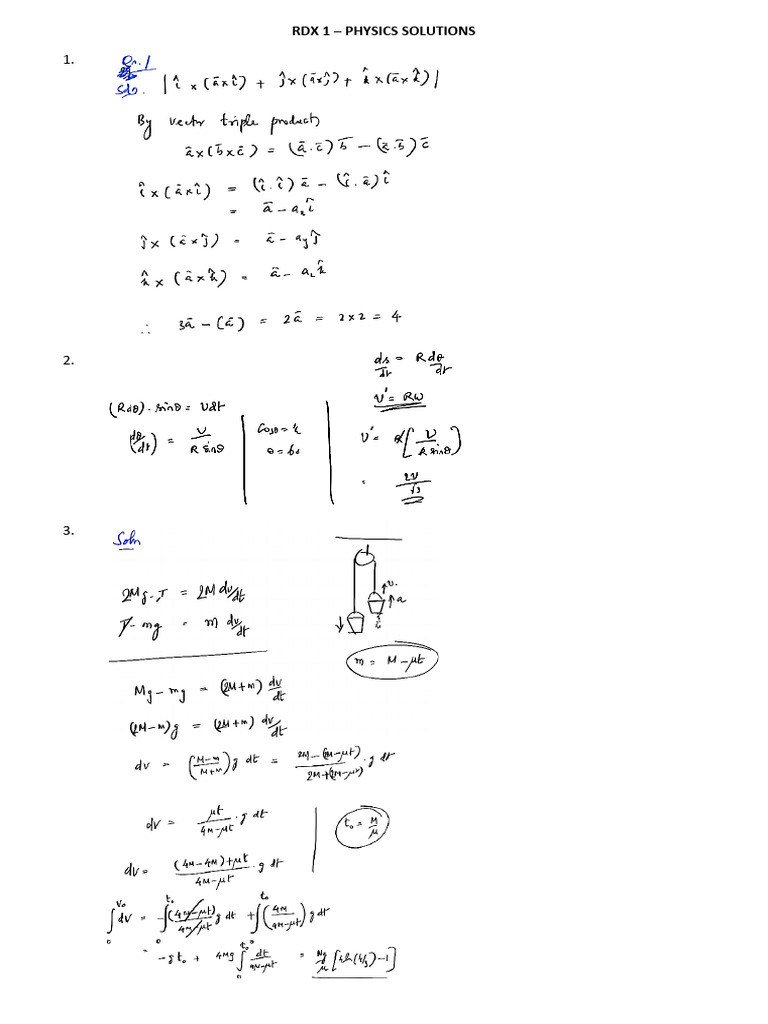 RDX 1 – PHYSICS SOLUTIONS
1.
Qn. 1
Soln. | î × (ā×î) + ĵ×(ā×ĵ) + k̂×(ā×k̂) |
By vector triple product,
ā×(b̄×c̄) = (ā.c̄) b̄ − (ā.b̄) c̄
î×(ā×î) = (î.î) ā − (î.ā) î
= ā − aₓî
ĵ× (ā×ĵ) = ā − a_yĵ
k̂ × (ā×k̂) = ā − a_z k̂
∴ 3ā − (ā) = 2ā = 2×2 = 4
2.
ds/dt = R dθ/dt
(Rdθ).sinθ = vdt
v' = Rω
(dθ/dt) = v/(R sinθ)
Cosθ = ½
θ = 60
v' = R[v/(R sinθ)]
= 2v/√3
3.
Soln
2Mg − T = 2M dv/dt
T − mg = m dv/dt
v.
a
m = M − μt
Mg − mg = (2M+m) dv/dt
(2M−m)g = (2M+m) dv/dt
dv = ((M−m)/(M+m)) g dt = (2M−(2M−μt))/(2M+(2M−μt)) . g dt
dv = μt/(4M−μt) . g dt
t₀ = M/μ
dv = ((4M − 4M)+μt)/(4M−μt) . g dt
∫₀^v₀ dv = −∫₀^t₀ ((4M−μt)/(4M−μt)) g dt + ∫₀^t₀ (4M/(4M−μt)) g dt
= −g t₀ + 4Mg ∫₀^t₀ dt/(4M−μt) = Mg/μ [4 ln(4/3) −1]